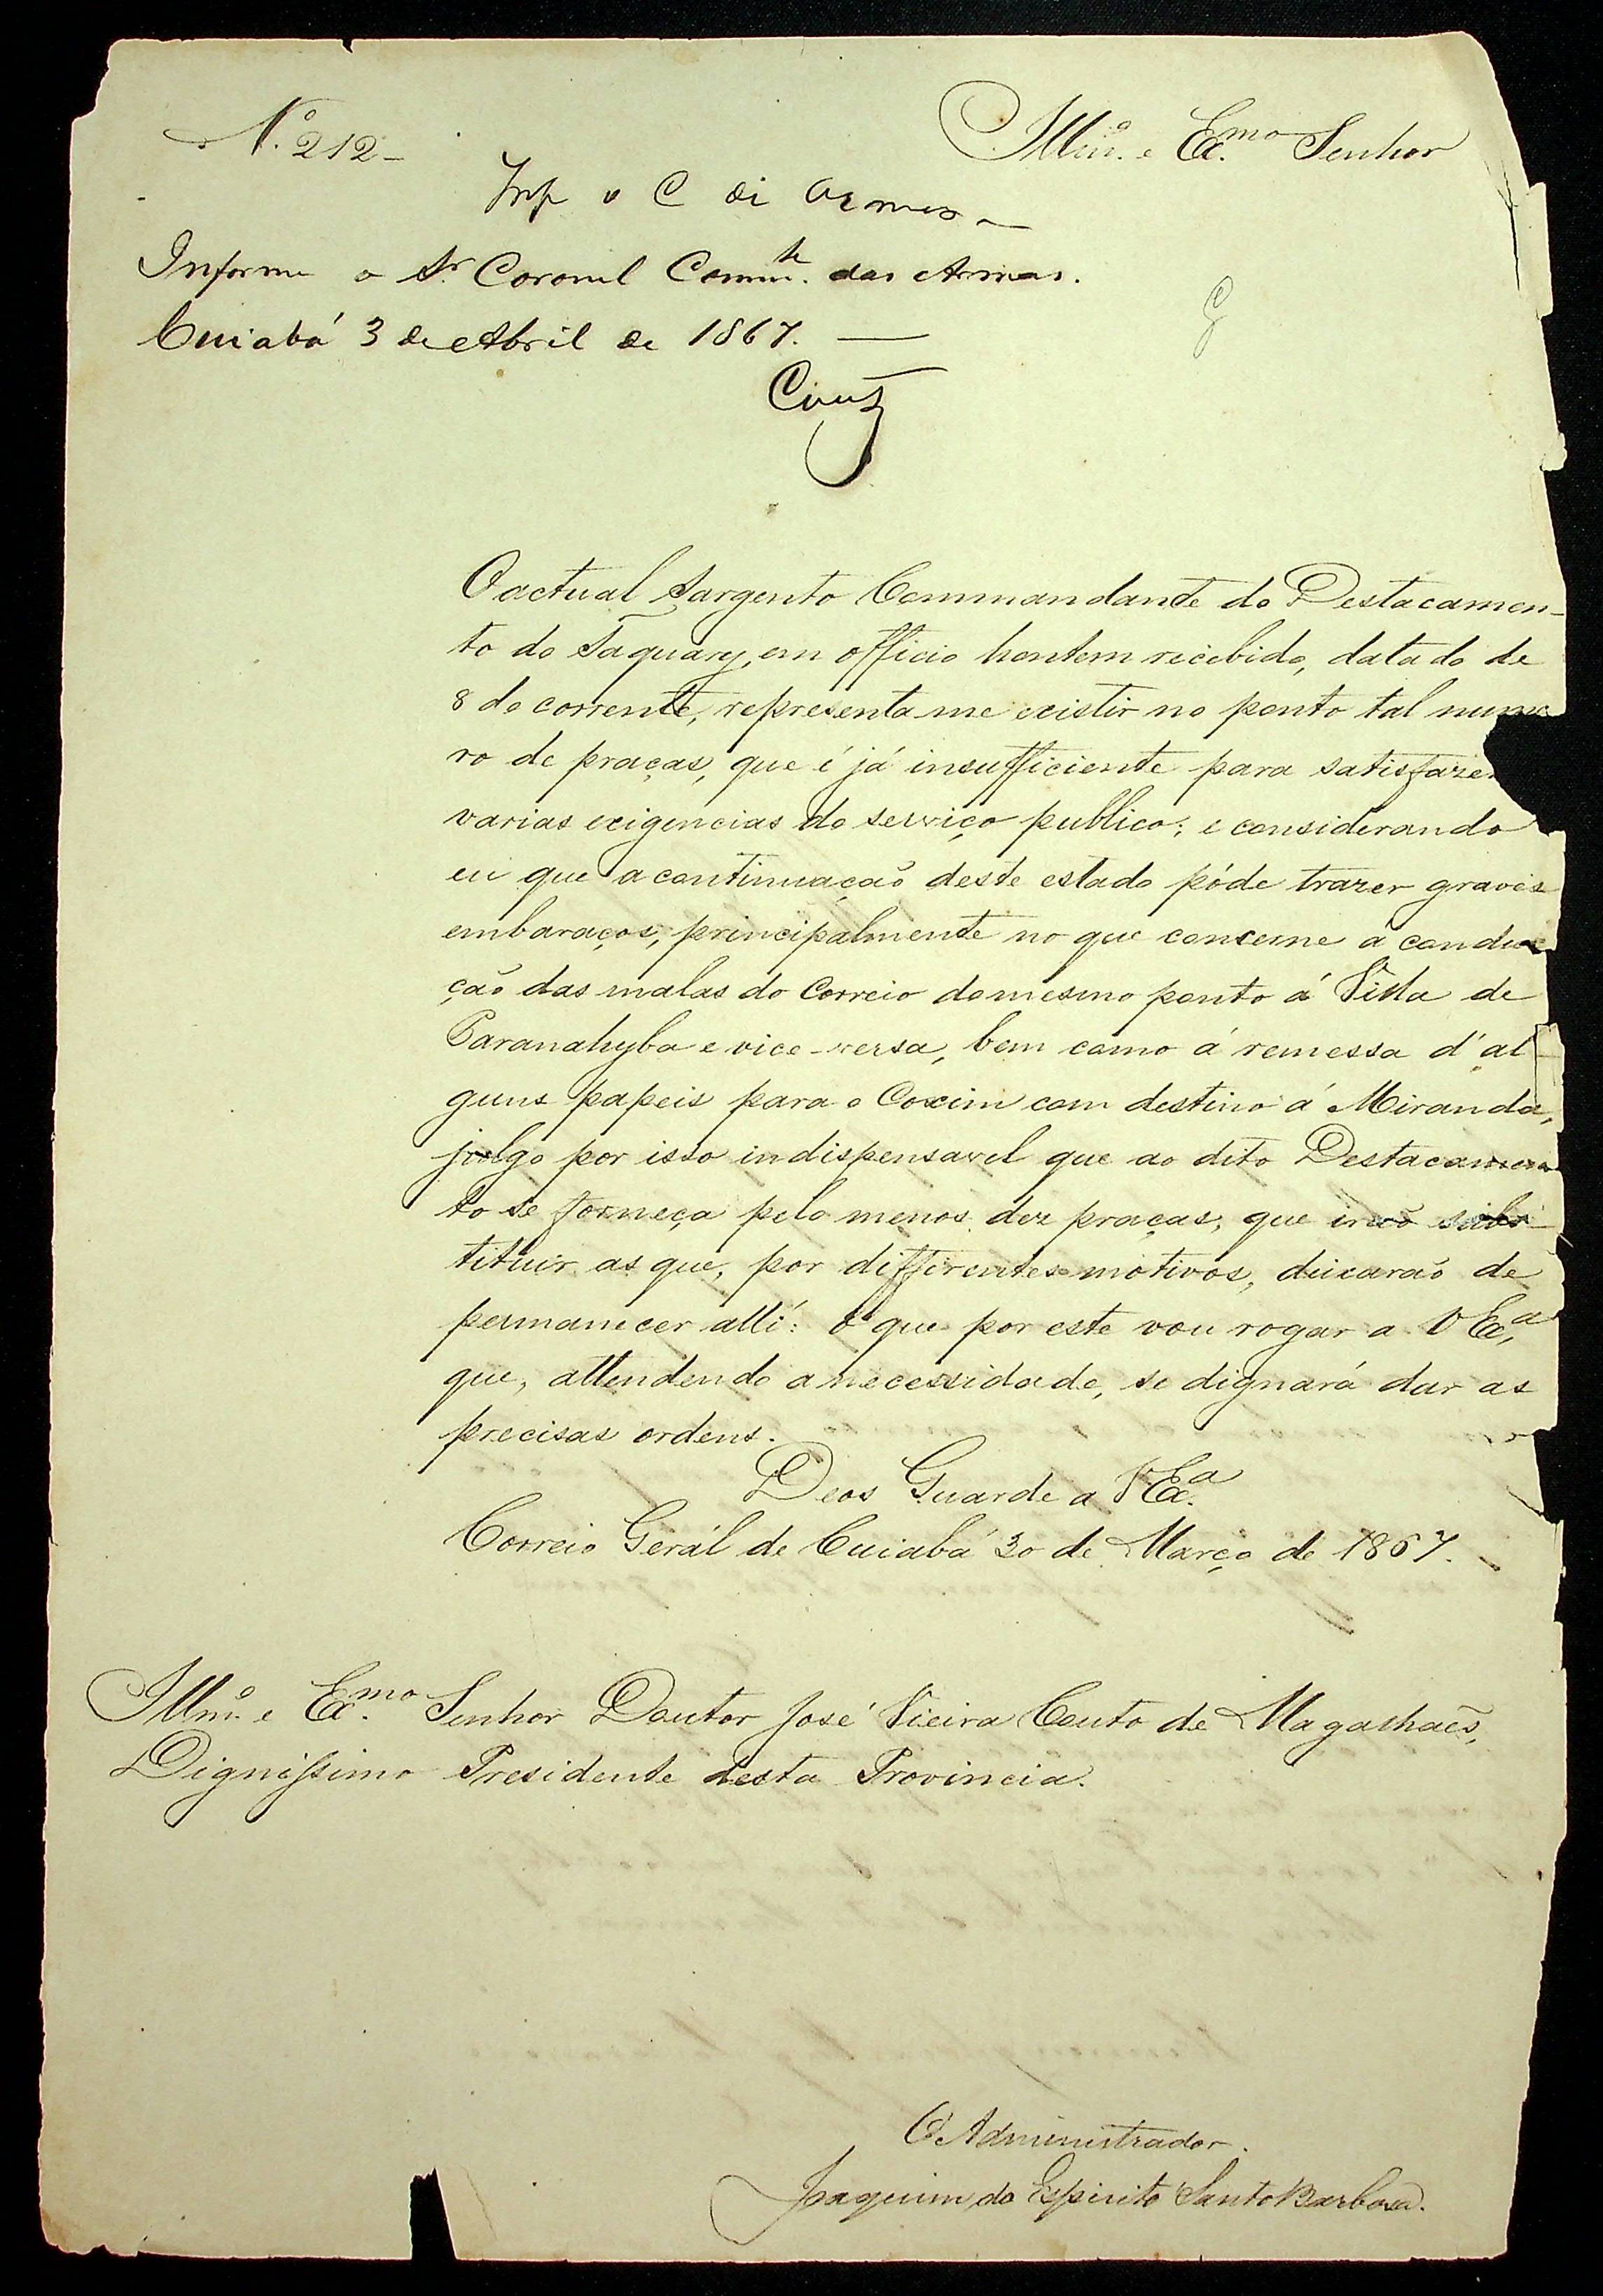 N.º 212-
Illm.º e Ex.mo Senhor
Inf o C di Armas
Informe o Sr. Coronel Comm.te das Armas.
Cuiabá 3 de Abril de 1867.
O actual Sargento Commandante do Destacamen-
to do Taquary, em officio hontem recebido, datado de
8 do corrente, representa me existir no ponto tal nume
ro de praças, que é já insufficiente para satisfazer
varias exigencias do serviço publico; e considerando
eu que a continuação deste estado póde trazer graves
embaraços, principalmente no que concerne á conduc
ção das malas do Correio do mesmo ponto á Villa de
Paranahyba e vice-versa, bem como á remessa d'al-
guns papeis para o Coxim com destino á Miranda,
julgo por isso indispensavel que ao dito Destacamen
to se forneça pelo menos dez praças, que irão subs-
tituir as que, por differentes motivos, deixarão de
permanecer alli: o que por este vou rogar a V Ex.a,
que, attendendo a necessidade, se dignará dar as
precisas ordens.
Deos Guarde a V Ex.a
Correio Gerál de Cuiabá 30 de Março de 1867.
Illm.º e Ex.mo Senhor Doutor José Vieira Couto de Magalhães,
Dignissimo Presidente desta Provincia.
O Administrador.
Joaquim do Espirito Santo Barbosa.